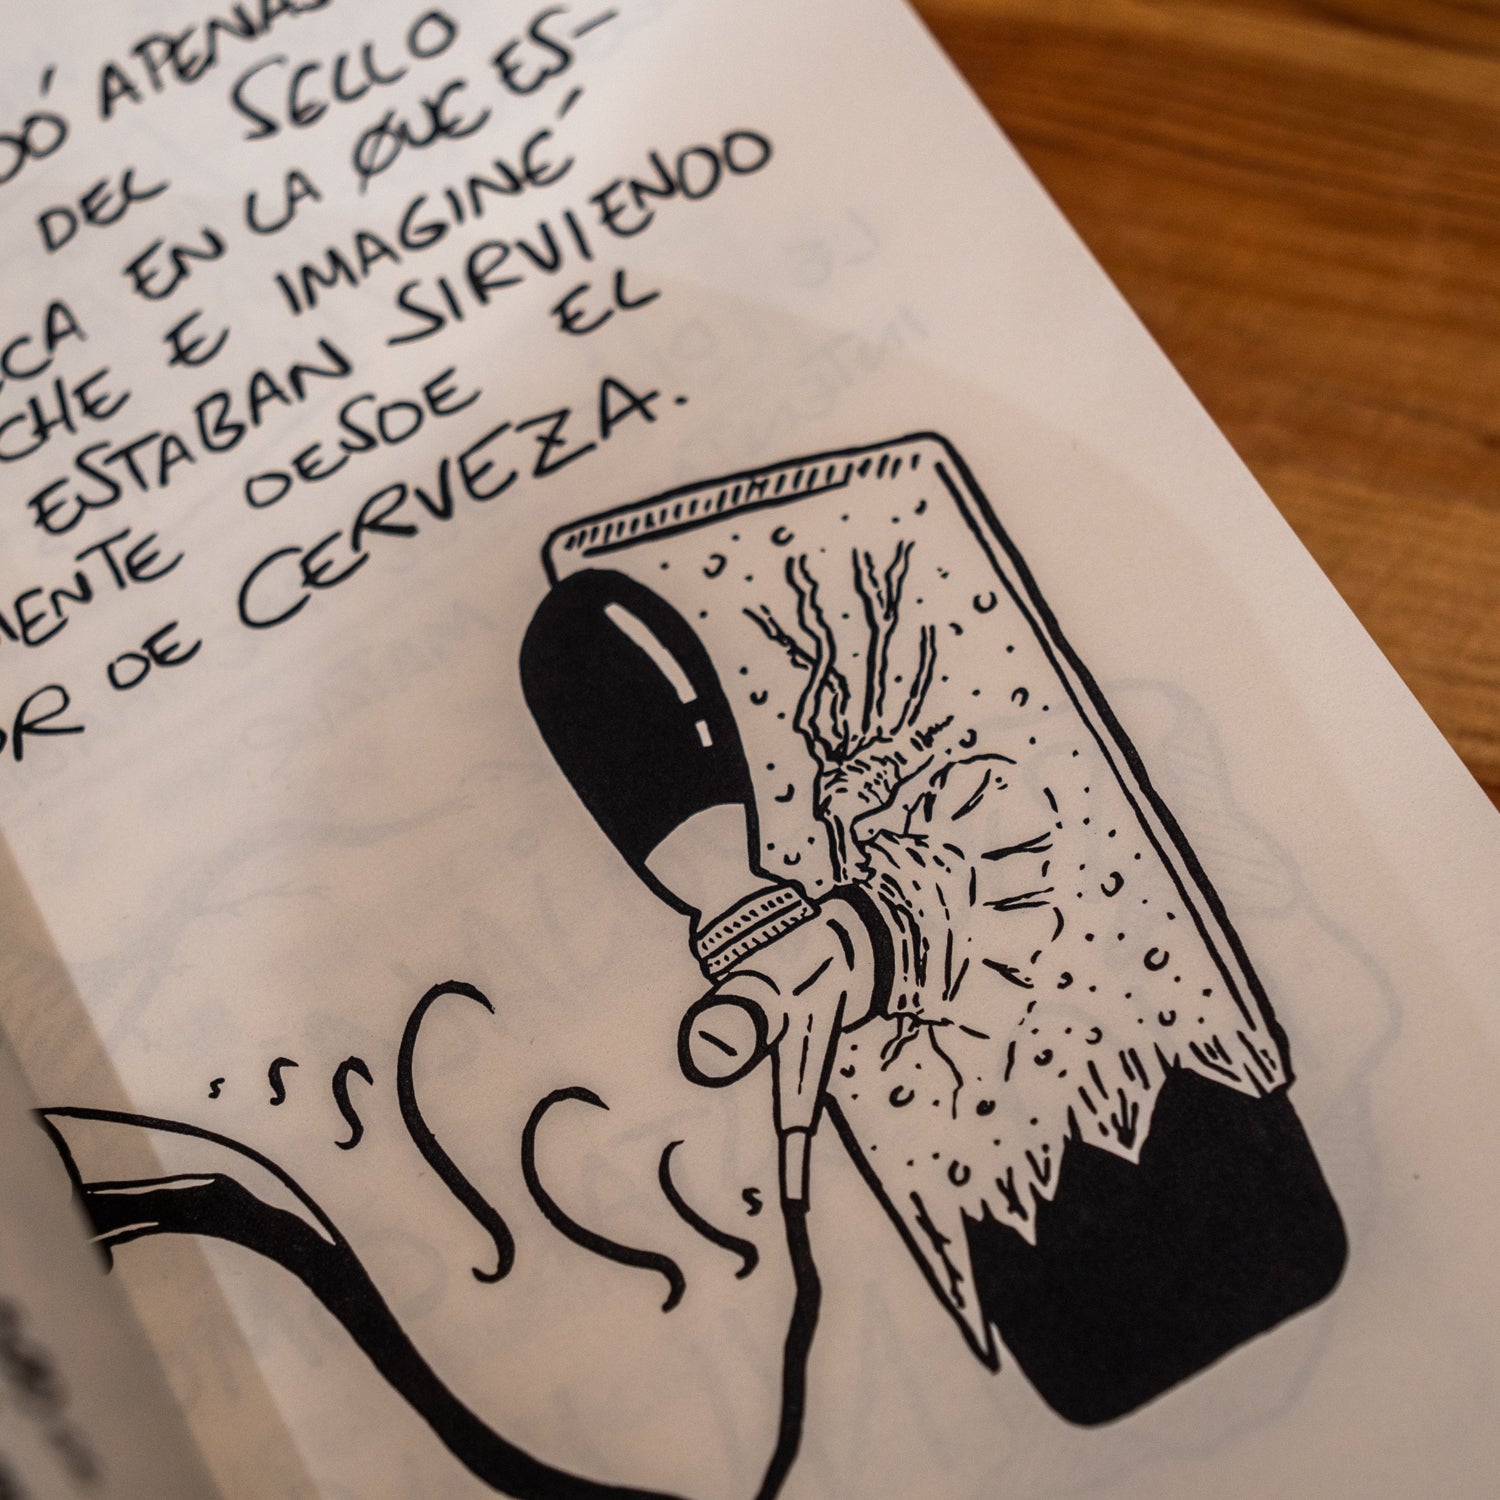 DÓ APENAS
DEL SELLO
CA EN LA QUE ES-
CHE E IMAGINÉ
ESTABAN SIRVIENDO
MENTE DESDE EL
OR DE CERVEZA.
s s s s s s s